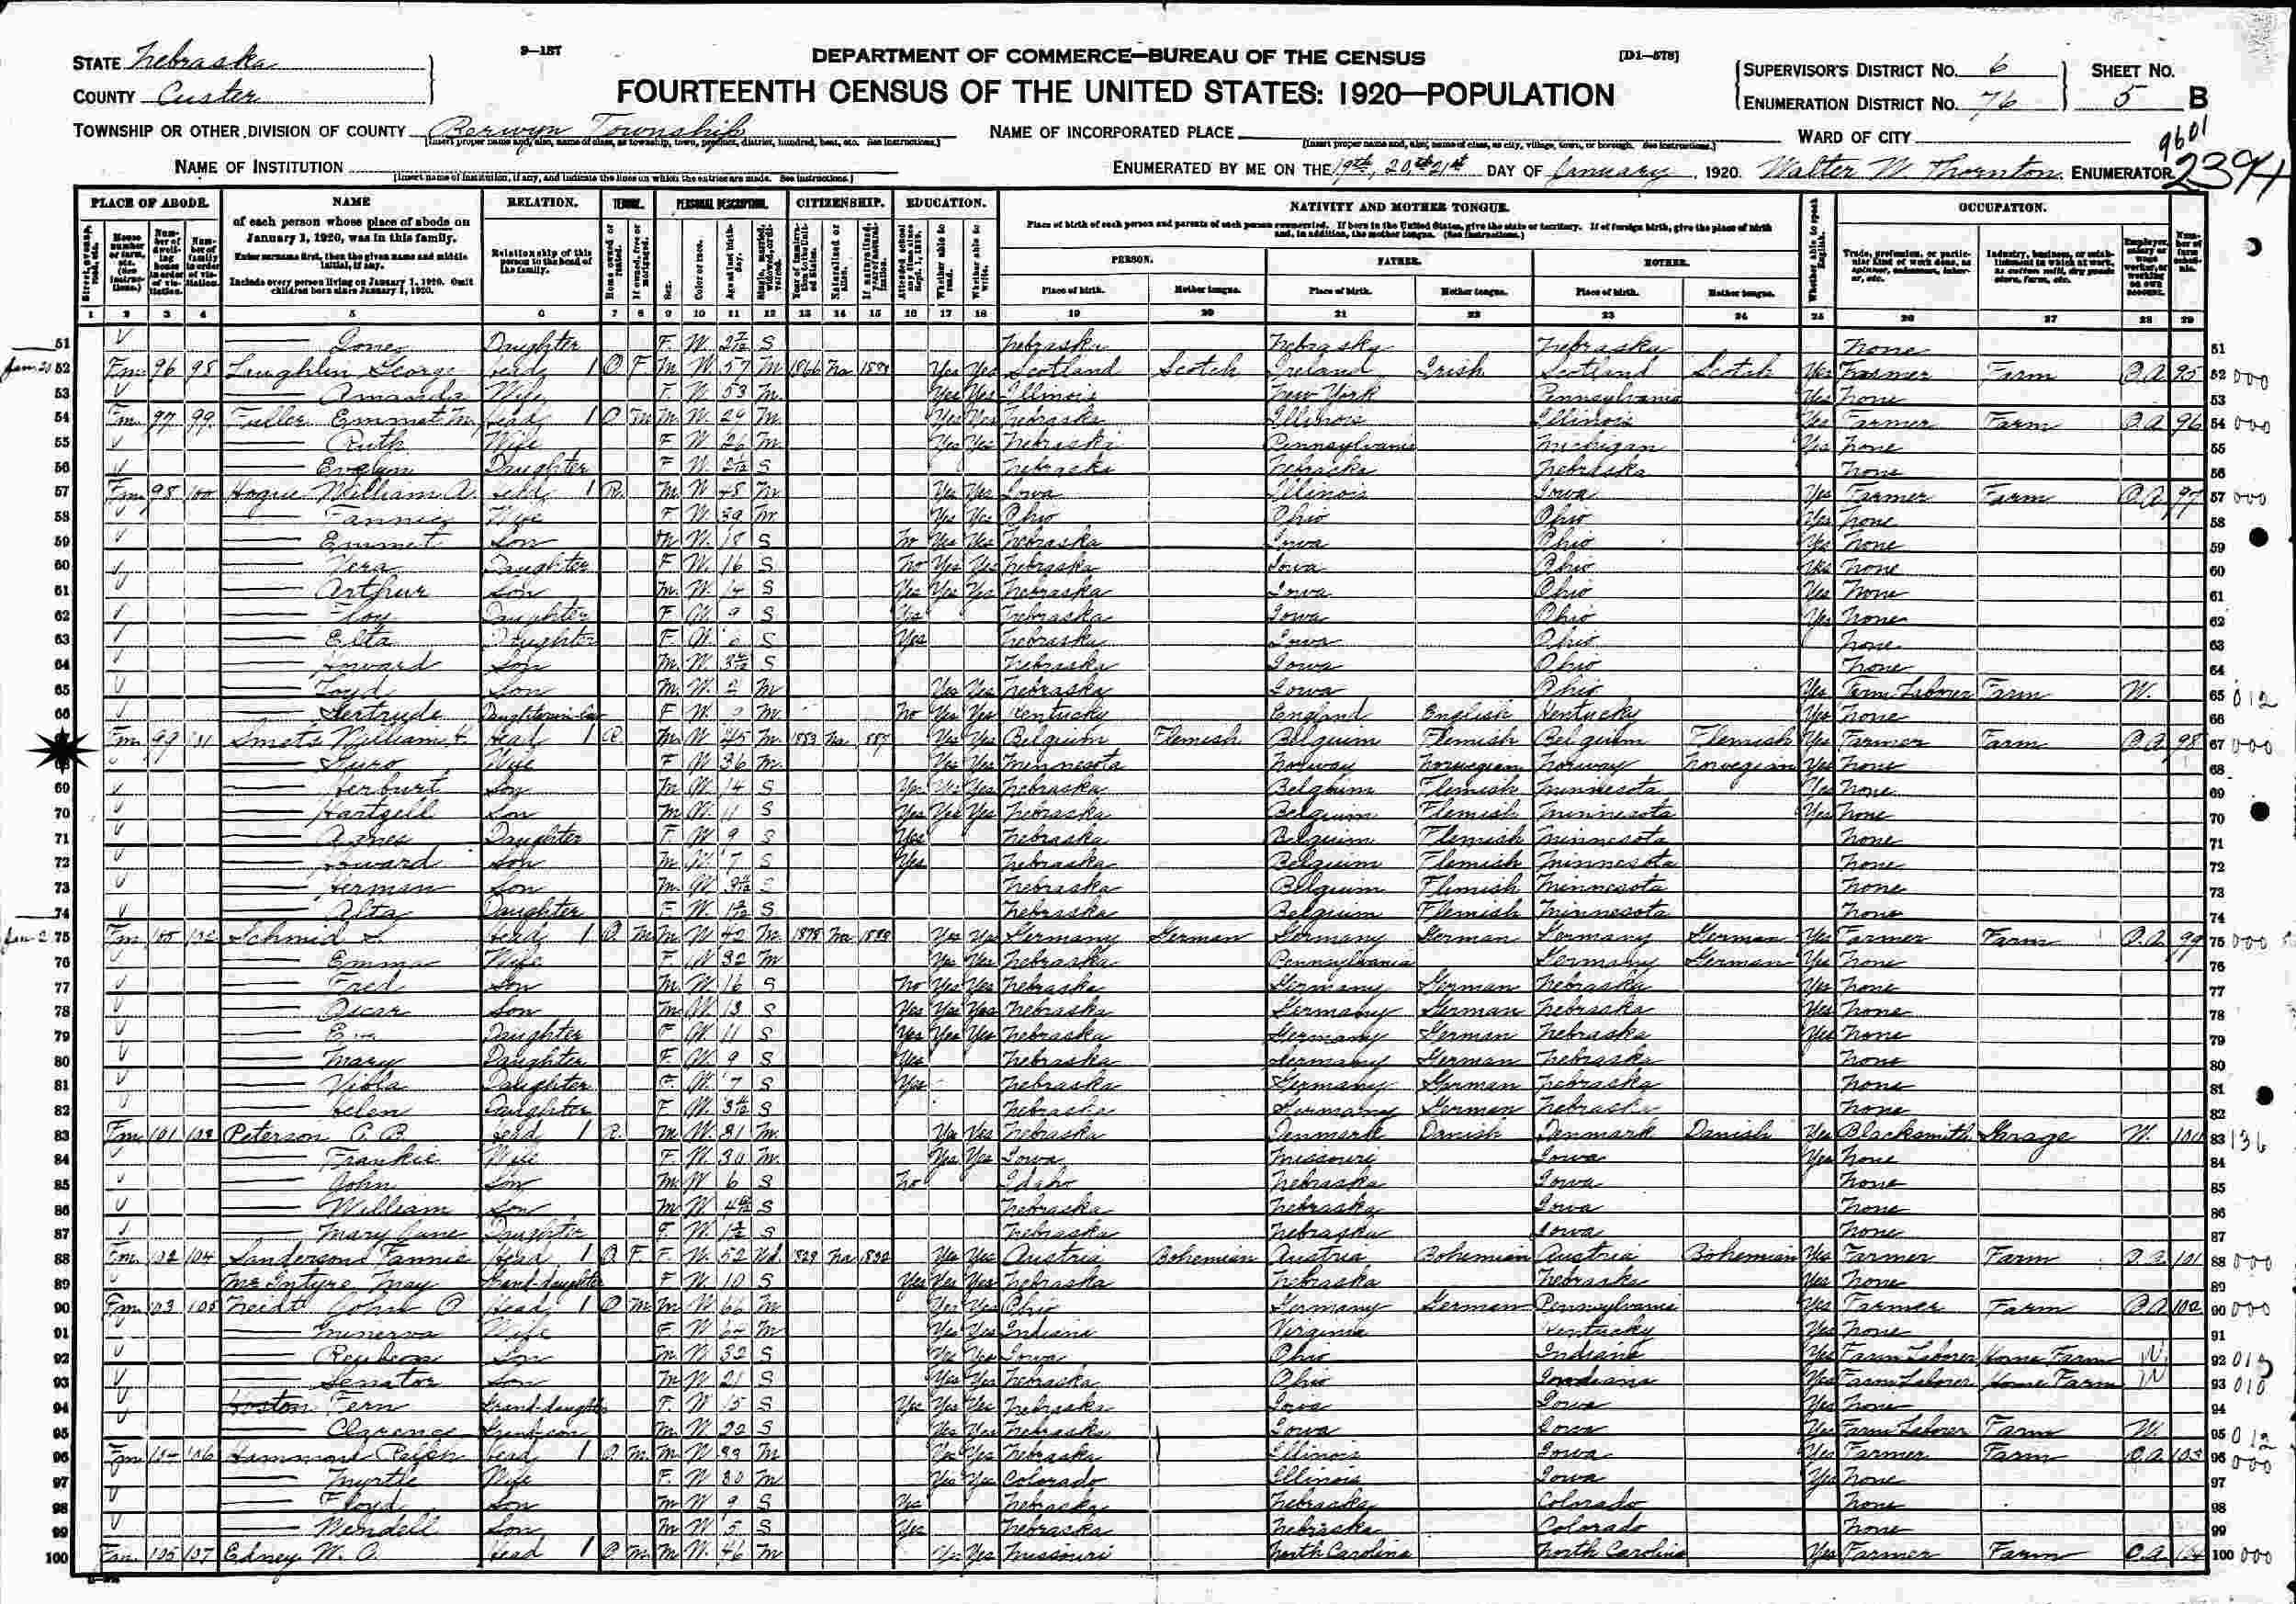 STATE Nebraska
9-157
DEPARTMENT OF COMMERCE—BUREAU OF THE CENSUS
[D1-578]
COUNTY Custer
FOURTEENTH CENSUS OF THE UNITED STATES: 1920—POPULATION
SUPERVISOR'S DISTRICT NO. 6
ENUMERATION DISTRICT NO. 76
SHEET NO. 5 B
TOWNSHIP OR OTHER DIVISION OF COUNTY Berwyn Township
NAME OF INCORPORATED PLACE
WARD OF CITY
9601
NAME OF INSTITUTION
ENUMERATED BY ME ON THE 19th, 20th 21st DAY OF January, 1920. Walter W. Thornton ENUMERATOR
2394
PLACE OF ABODE. NAME RELATION. TENURE. PERSONAL DESCRIPTION. CITIZENSHIP. EDUCATION. NATIVITY AND MOTHER TONGUE. OCCUPATION.
of each person whose place of abode on January 1, 1920, was in this family.
Enter surname first, then the given name and middle initial, if any.
Include every person living on January 1, 1920. Omit children born since January 1, 1920.
Relationship of this person to the head of the family.
PERSON. FATHER. MOTHER.
Place of birth. Mother tongue. Place of birth. Mother tongue. Place of birth. Mother tongue.
1 2 3 4 5 6 7 8 9 10 11 12 13 14 15 16 17 18 19 20 21 22 23 24 25 26 27 28 29
51 Daughter F W S Nebraska Nebraska Nebraska None 51
52 Fm 96 98 Laughlin George Head 1 O F M W 57 M 1866 Na Yes Yes Scotland Scotch Ireland Irish Scotland Scotch Yes Farmer Farm O.A. 95 52 000
53 Amanda Wife F W 53 M Yes Yes Illinois New York Pennsylvania Yes None 53
54 Fm 97 99 Fuller Emmet M. Head 1 O M M W 29 M Yes Yes Nebraska Illinois Illinois Yes Farmer Farm O.A. 96 54 000
55 Ruth Wife F W 26 M Yes Yes Nebraska Pennsylvania Michigan Yes None 55
56 Evelyn Daughter F W S Nebraska Nebraska Nebraska None 56
57 Fm 98 100 Hogue William A. Head 1 R M W 48 M Yes Yes Iowa Illinois Iowa Yes Farmer Farm O.A. 97 57 000
58 Fannie Wife F W 39 M Yes Yes Ohio Ohio Ohio Yes None 58
59 Emmet Son M W 18 S No Yes Yes Nebraska Iowa Ohio Yes None 59
60 Vera Daughter F W 16 S No Yes Yes Nebraska Iowa Ohio Yes None 60
61 Arthur Son M W 14 S Yes Yes Yes Nebraska Iowa Ohio Yes None 61
62 Floy Daughter F W 9 S Yes Nebraska Iowa Ohio Yes None 62
63 Daughter F W S Yes Nebraska Iowa Ohio None 63
64 Howard Son M W S Nebraska Iowa Ohio None 64
65 Son M W M Yes Yes Nebraska Iowa Ohio Yes Farm Laborer Farm W. 65 012
66 Gertrude Daughter-in-law F W M No Yes Yes Kentucky England English Kentucky Yes None 66
Fm 99 Smets William H. Head 1 R M W 45 M 1883 Na Yes Yes Belgium Flemish Belgium Flemish Belgium Flemish Yes Farmer Farm O.A. 98 67 000
Guro Wife F W 36 M Yes Yes Minnesota Norway Norwegian Norway Norwegian Yes None 68
69 Herburt Son M W 14 S Yes Yes Yes Nebraska Belgium Flemish Minnesota Yes None 69
70 Hartzell Son M W 11 S Yes Yes Yes Nebraska Belgium Flemish Minnesota Yes None 70
71 Agnes Daughter F W 9 S Yes Nebraska Belgium Flemish Minnesota None 71
72 Howard Son M W 7 S Yes Nebraska Belgium Flemish Minnesota None 72
73 Herman Son M W Nebraska Belgium Flemish Minnesota None 73
74 Alta Daughter F W S Nebraska Belgium Flemish Minnesota None 74
75 Fm 100 102 Schmid S. Head 1 O M M W 42 M Na Yes Yes Germany German Germany German Germany German Yes Farmer Farm O.A. 99 75 000
76 Emma Wife F W 32 M Yes Yes Nebraska Pennsylvania Germany German Yes None 76
77 Fred Son M W 16 S No Yes Yes Nebraska Germany German Nebraska Yes None 77
78 Oscar Son M W 13 S Yes Yes Yes Nebraska Germany German Nebraska Yes None 78
79 Daughter F W 11 S Yes Yes Yes Nebraska Germany German Nebraska Yes None 79
80 Mary Daughter F W 9 S Yes Nebraska Germany German Nebraska None 80
81 Viola Daughter F W 7 S Yes Nebraska Germany German Nebraska None 81
82 Helen Daughter F W S Nebraska Germany German Nebraska None 82
83 Fm 101 103 Peterson C. B. Head 1 R M W 31 M Yes Yes Nebraska Denmark Danish Denmark Danish Yes Blacksmith Garage W. 100 83 136
84 Frankie Wife F W 30 M Yes Yes Iowa Missouri Iowa Yes None 84
85 John Son M W 6 S No Idaho Nebraska Iowa None 85
86 William Son M W S Nebraska Nebraska Iowa None 86
87 Mary Jane Daughter F W S Nebraska Nebraska Iowa None 87
88 Fm 102 104 Sanderson Fannie Head 1 O F F W 52 Wd Na Yes Yes Austria Bohemian Austria Bohemian Austria Bohemian Yes Farmer Farm O.A. 101 88 000
89 McIntyre May Grand-daughter F W 10 S Yes Yes Yes Nebraska Nebraska Nebraska Yes None 89
90 Fm 103 105 Neidt John O Head 1 O M M W 66 M Yes Yes Ohio Germany German Pennsylvania Yes Farmer Farm O.A. 102 90 000
91 Minerva Wife F W 64 M Yes Yes Indiana Virginia Kentucky Yes None 91
92 Reuben Son M W 32 S Yes Yes Iowa Ohio Indiana Yes Farm Laborer Home Farm W 92
93 Senator Son M W 21 S Yes Yes Nebraska Ohio Indiana Yes Farm Laborer Home Farm W 93 010
94 Hoston Fern Grand-daughter F W 15 S Yes Yes Yes Nebraska Iowa Iowa Yes None 94
95 Clarence Grand-son M W 20 S Yes Yes Nebraska Iowa Iowa Yes Farm Laborer Farm W. 95 012
96 Fm 104 106 Hammond Ralph Head 1 O M M W 33 M Yes Yes Nebraska Illinois Iowa Yes Farmer Farm O.A. 103 96 000
97 Myrtle Wife F W 30 M Yes Yes Colorado Illinois Iowa Yes None 97
98 Floyd Son M W 9 S Yes Nebraska Nebraska Colorado None 98
99 Wendell Son M W 5 S Yes Nebraska Nebraska Colorado None 99
100 Fm 105 107 Edney W. O. Head 1 O M M W 46 M Yes Yes Missouri North Carolina North Carolina Yes Farmer Farm O.A. 104 100 000